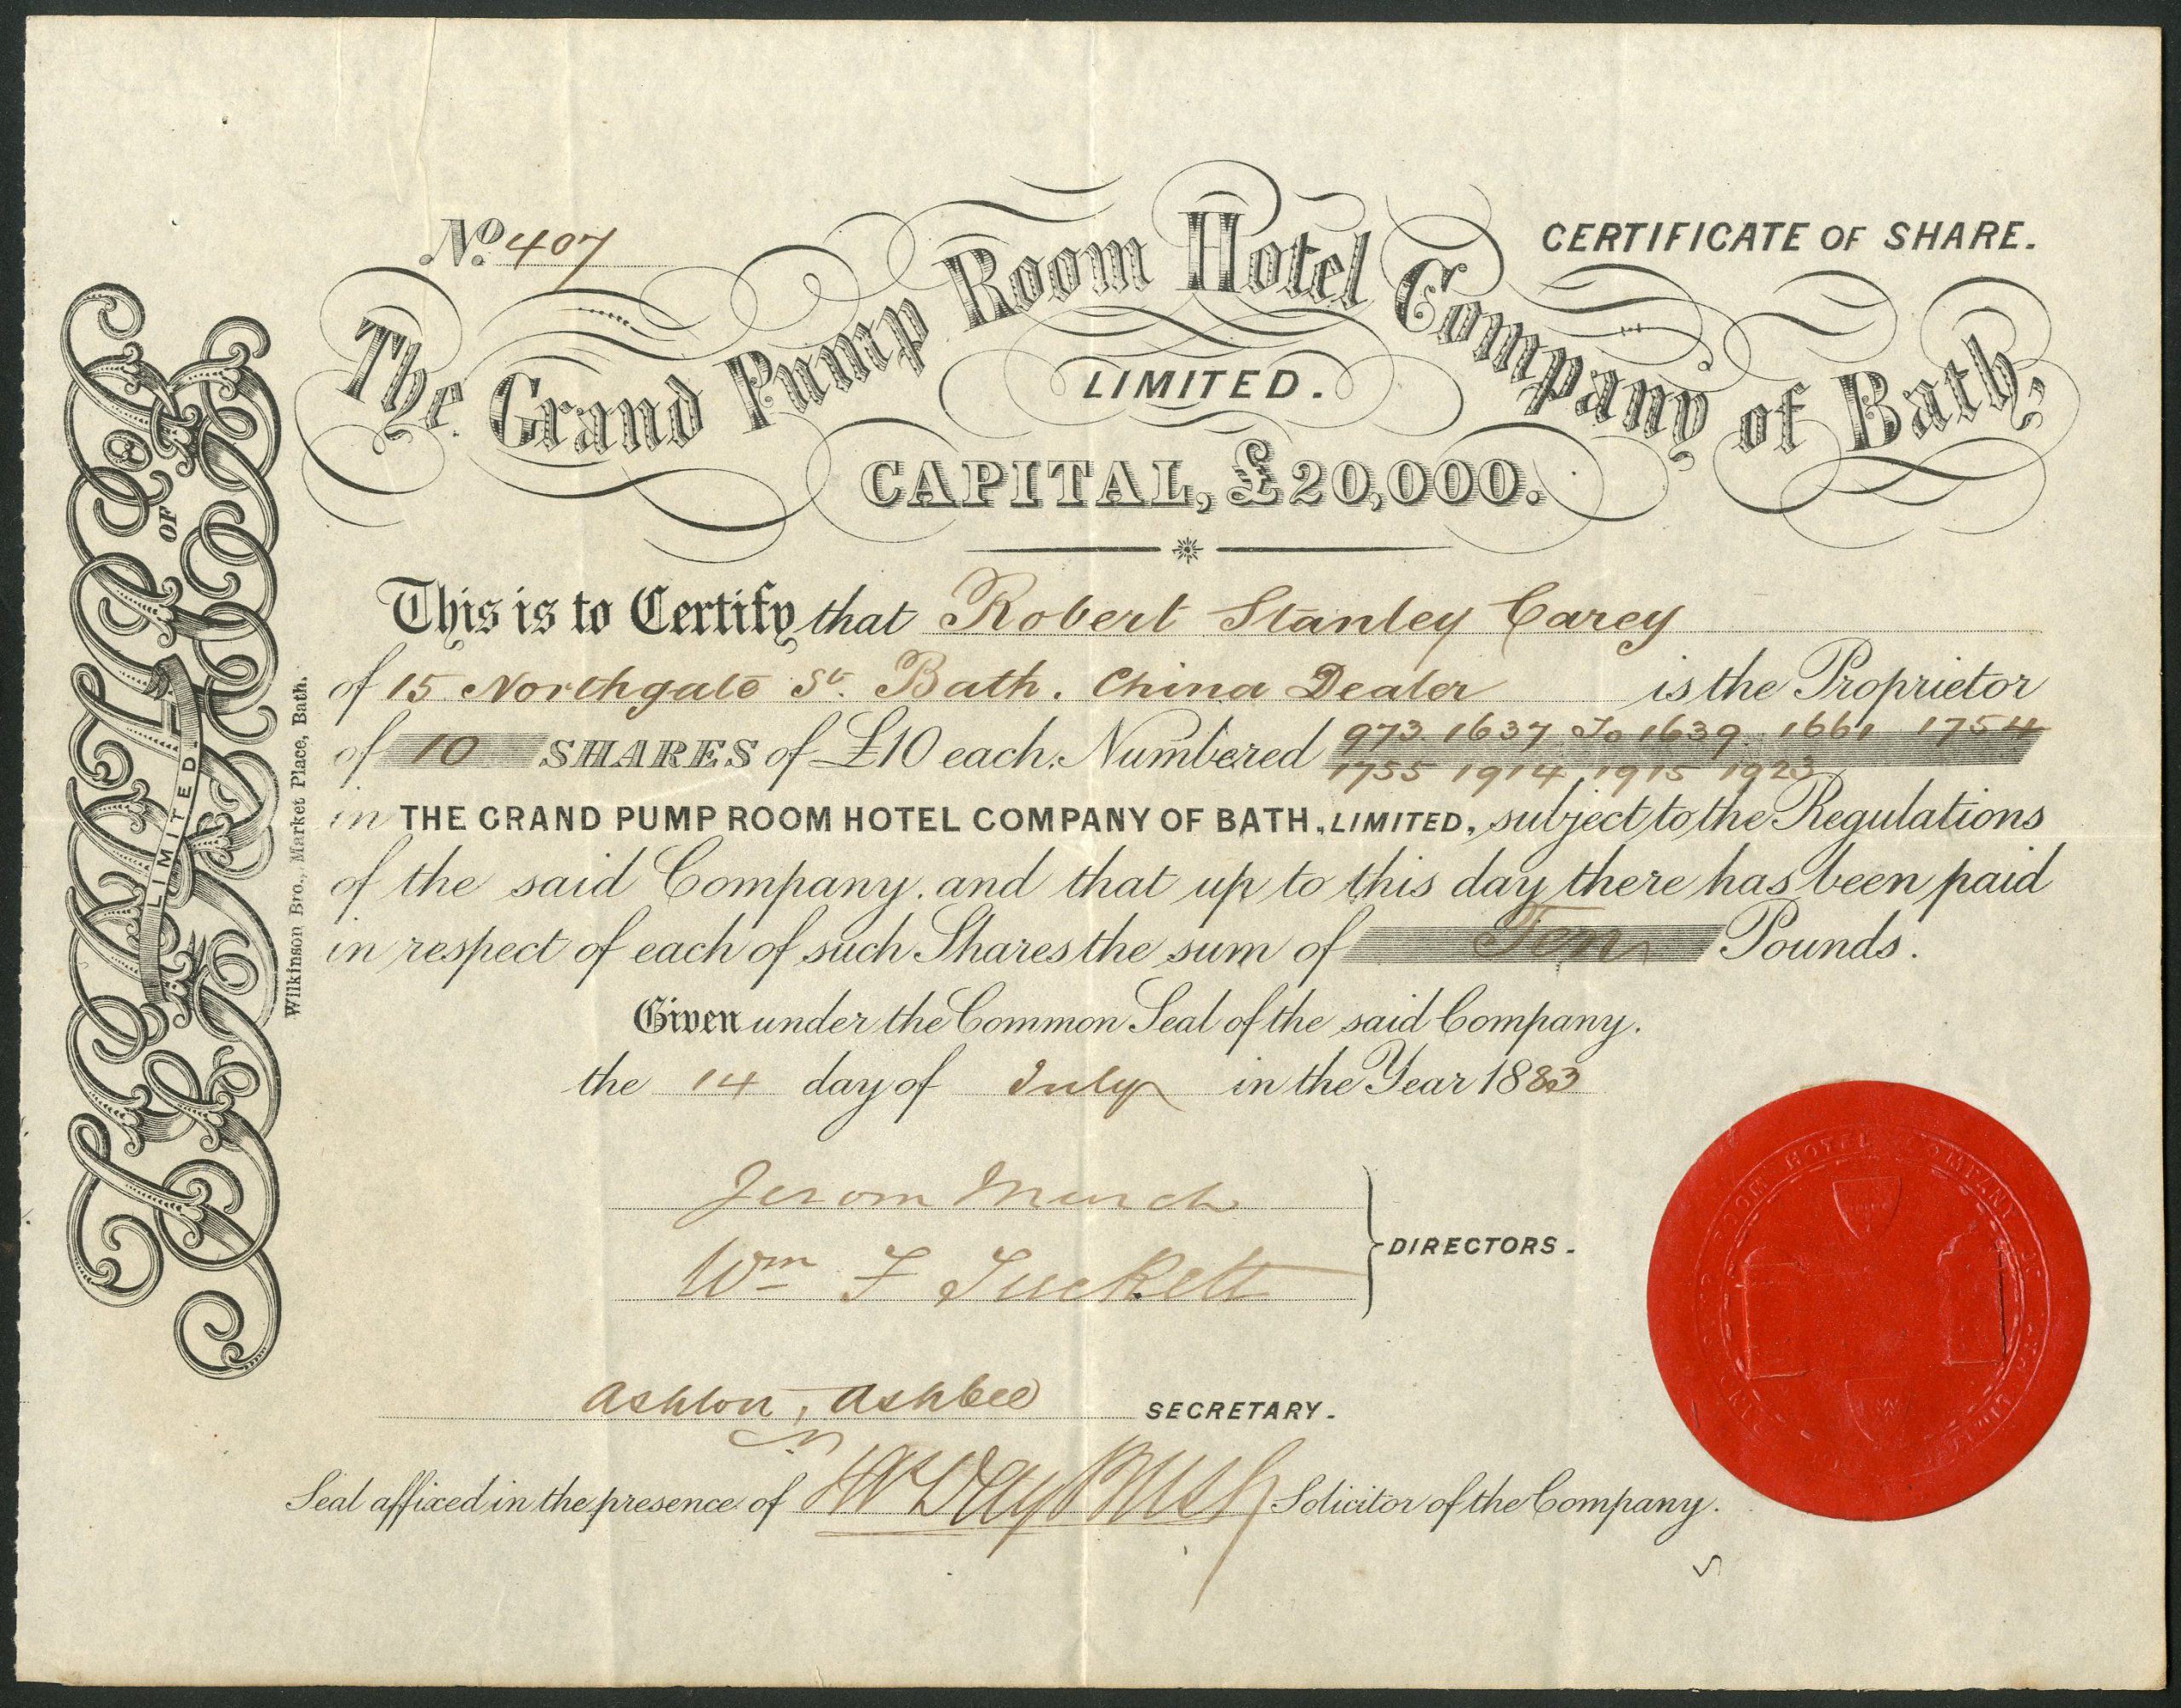 No. 407
CERTIFICATE OF SHARE.
The Grand Pump Room Hotel Company of Bath,
LIMITED.
CAPITAL, £20,000.
This is to Certify that Robert Stanley Carey
of 15 Northgate St. Bath. China Dealer is the Proprietor
of 10 SHARES of £10 each. Numbered 973 1637 To 1639 1661 1754
1755 1914 1915 1923
in THE GRAND PUMP ROOM HOTEL COMPANY OF BATH, LIMITED, subject to the Regulations
of the said Company, and that up to this day there has been paid
in respect of each of such Shares the sum of Ten Pounds.
Given under the Common Seal of the said Company.
the 14 day of July in the Year 1883
Jerom Murch
Wm F Tuckett
DIRECTORS.
Ashton, Ashbee SECRETARY.
Seal affixed in the presence of Solicitor of the Company.
OF
LIMITED.
Wilkinson Bro., Market Place, Bath.
ROOM HOTEL COMPANY